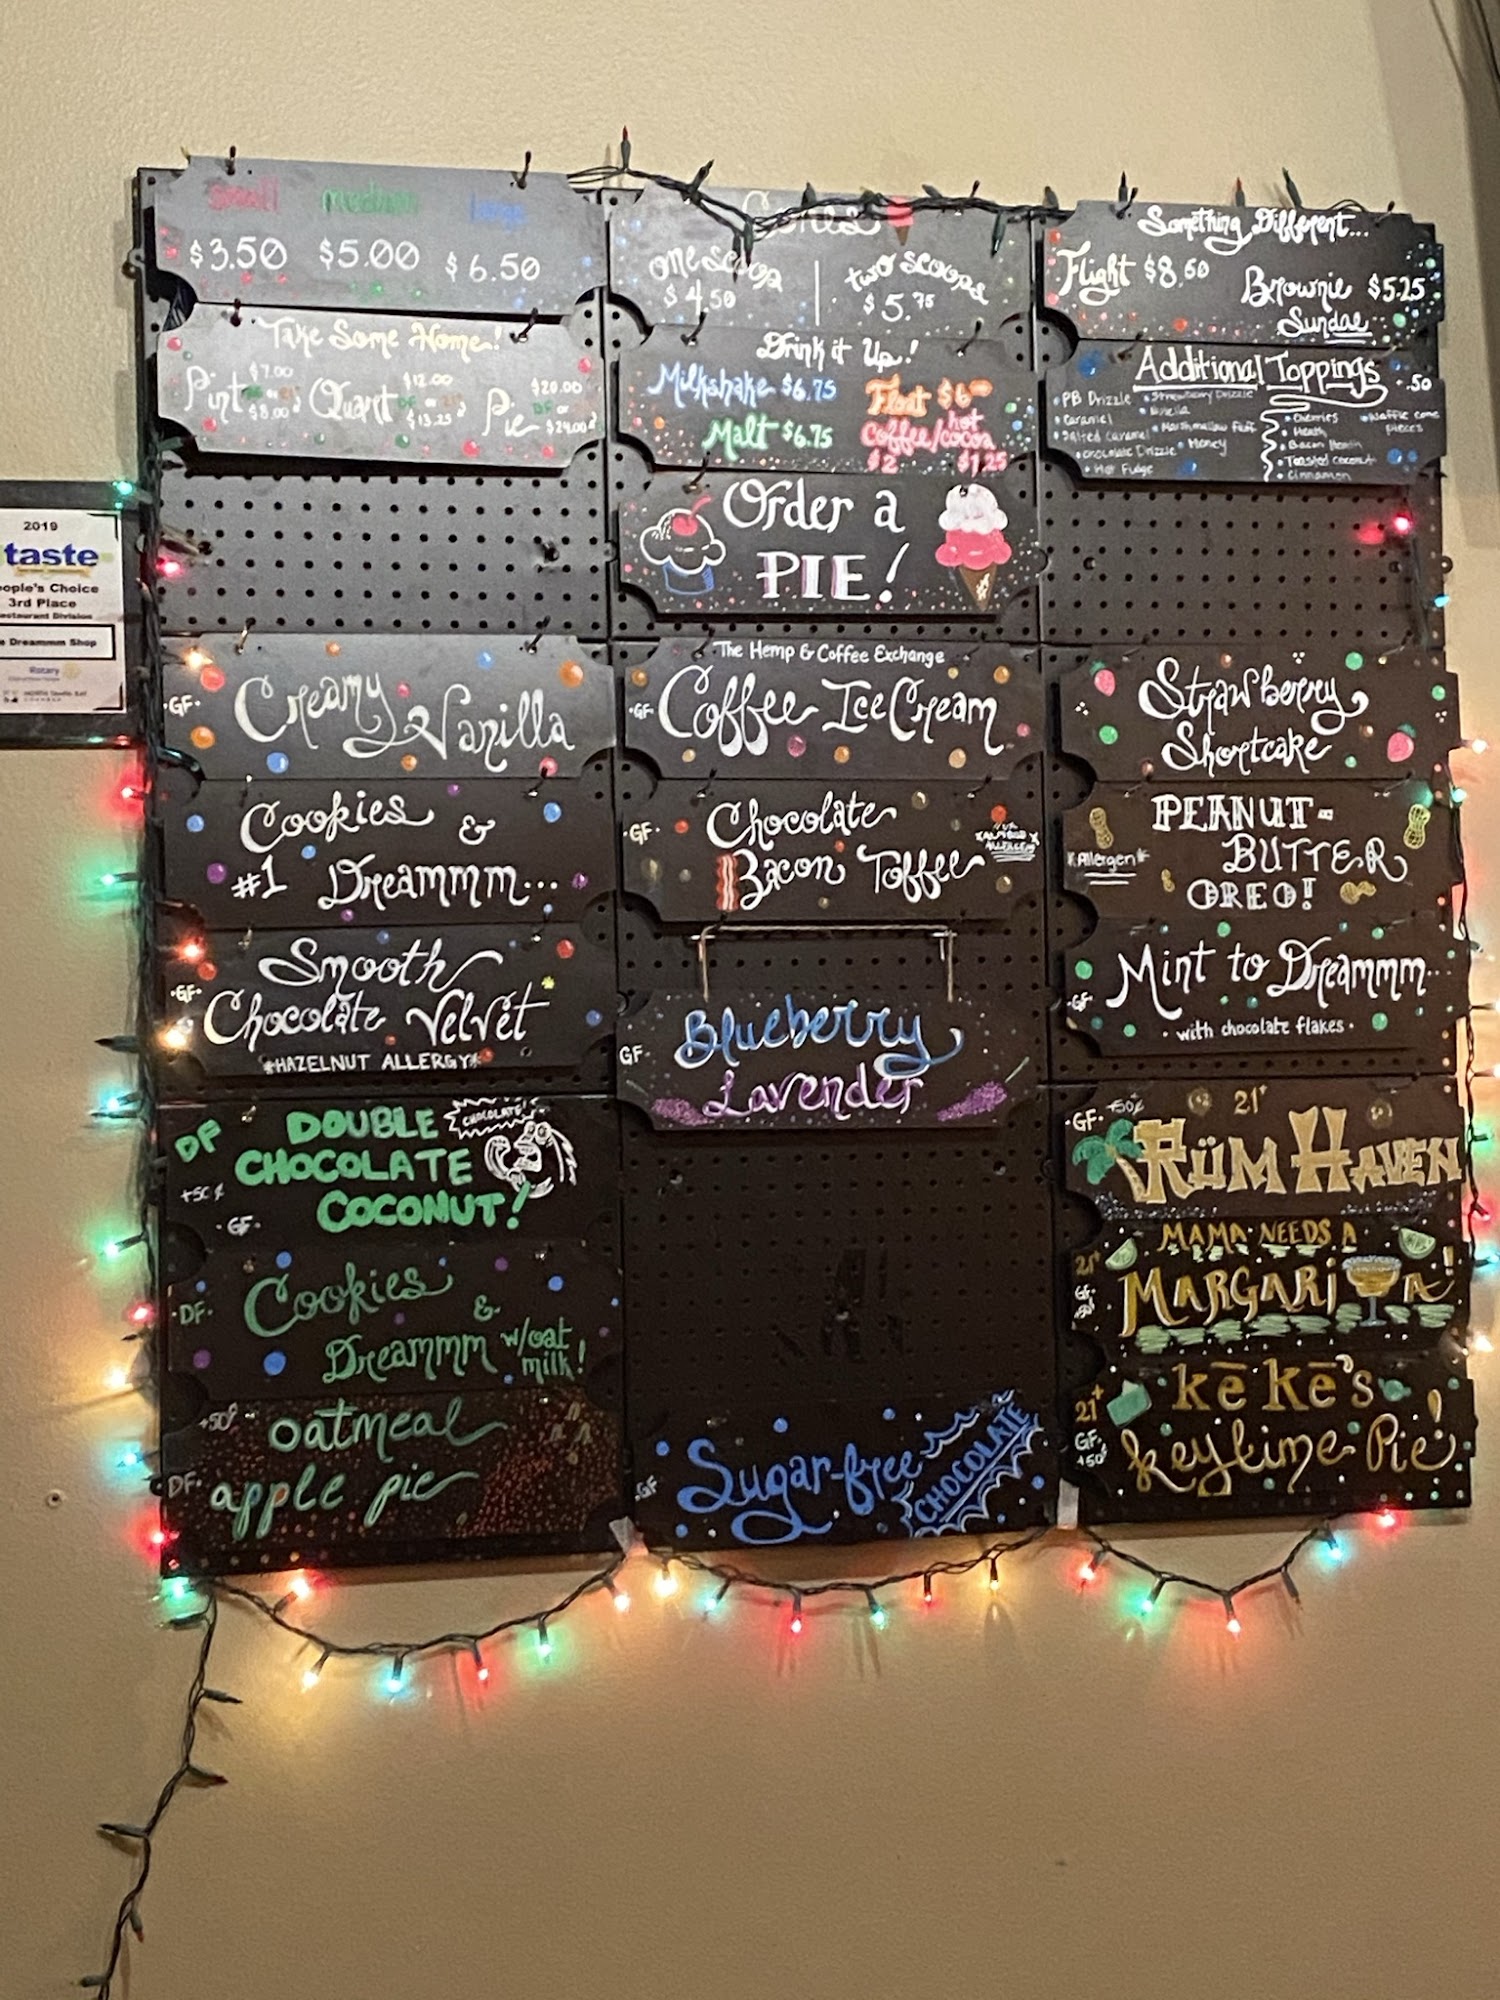 small medium large
$3.50 $5.00 $6.50
Take Some Home!
Pint $7.00
$8.00
Quart $12.00
DF
$13.25
Pie $20.00
DF
$24.00
Cones
one scoop
$4.50
two scoops
$5.75
Drink it Up!
Milkshake $6.75
Float $6
Malt $6.75
hot
Coffee/cocoa
$2 $1.25
Order a
PIE!
Something Different...
Flight $8.50
Brownie $5.25
Sundae
Additional Toppings
.50
• PB Drizzle
• Caramel
• Salted Caramel
• chocolate Drizzle
• Hot Fudge
• Strawberry Drizzle
• Nutella
• Marshmallow Fluff
• Honey
• Cherries
• Heath
• Bacon Heath
• Toasted coconut
• Cinnamon
• Waffle cone
pieces
2019
taste
People's Choice
3rd Place
Restaurant Division
Dreammm Shop
Rotary
•GF•
Creamy
Vanilla
Cookies &
#1 Dreammm...
•GF•
Smooth
Chocolate Velvet
*HAZELNUT ALLERGY*
DF
+50¢
•GF•
DOUBLE
CHOCOLATE
COCONUT!
CHOCOLATE!
•DF•
Cookies
&
Dreammm w/oat
milk!
+50¢
DF•
oatmeal
apple pie
The Hemp & Coffee Exchange
•GF•
Coffee Ice Cream
•GF•
Chocolate
Bacon Toffee
GF•
Blueberry
Lavender
•GF
Sugar-free
CHOCOLATE
Strawberry
Shortcake
*Allergen*
PEANUT-
BUTTER
OREO!
•GF•
Mint to Dreammm...
•with chocolate flakes•
•GF• +50¢ 21+
RÜM HAVEN
21+
GF•
+50¢
MAMA NEEDS A
MARGARITA!
21+
GF•
+50¢
kēkē's
keylime Pie!